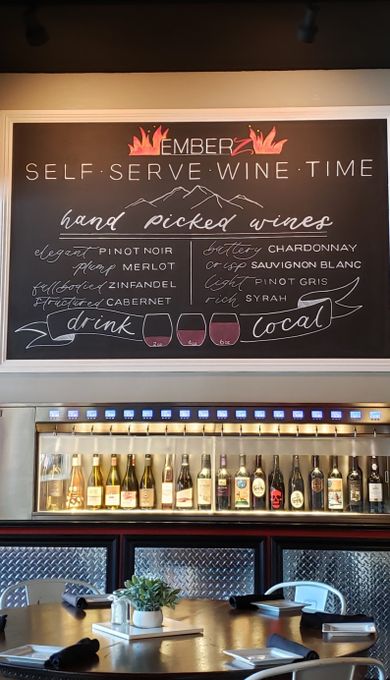 EMBERZ
SELF·SERVE·WINE·TIME
hand picked wines
elegant PINOT NOIR
plump MERLOT
full bodied ZINFANDEL
structured CABERNET
buttery CHARDONNAY
crisp SAUVIGNON BLANC
light PINOT GRIS
rich SYRAH
drink local
2oz 4oz 6oz